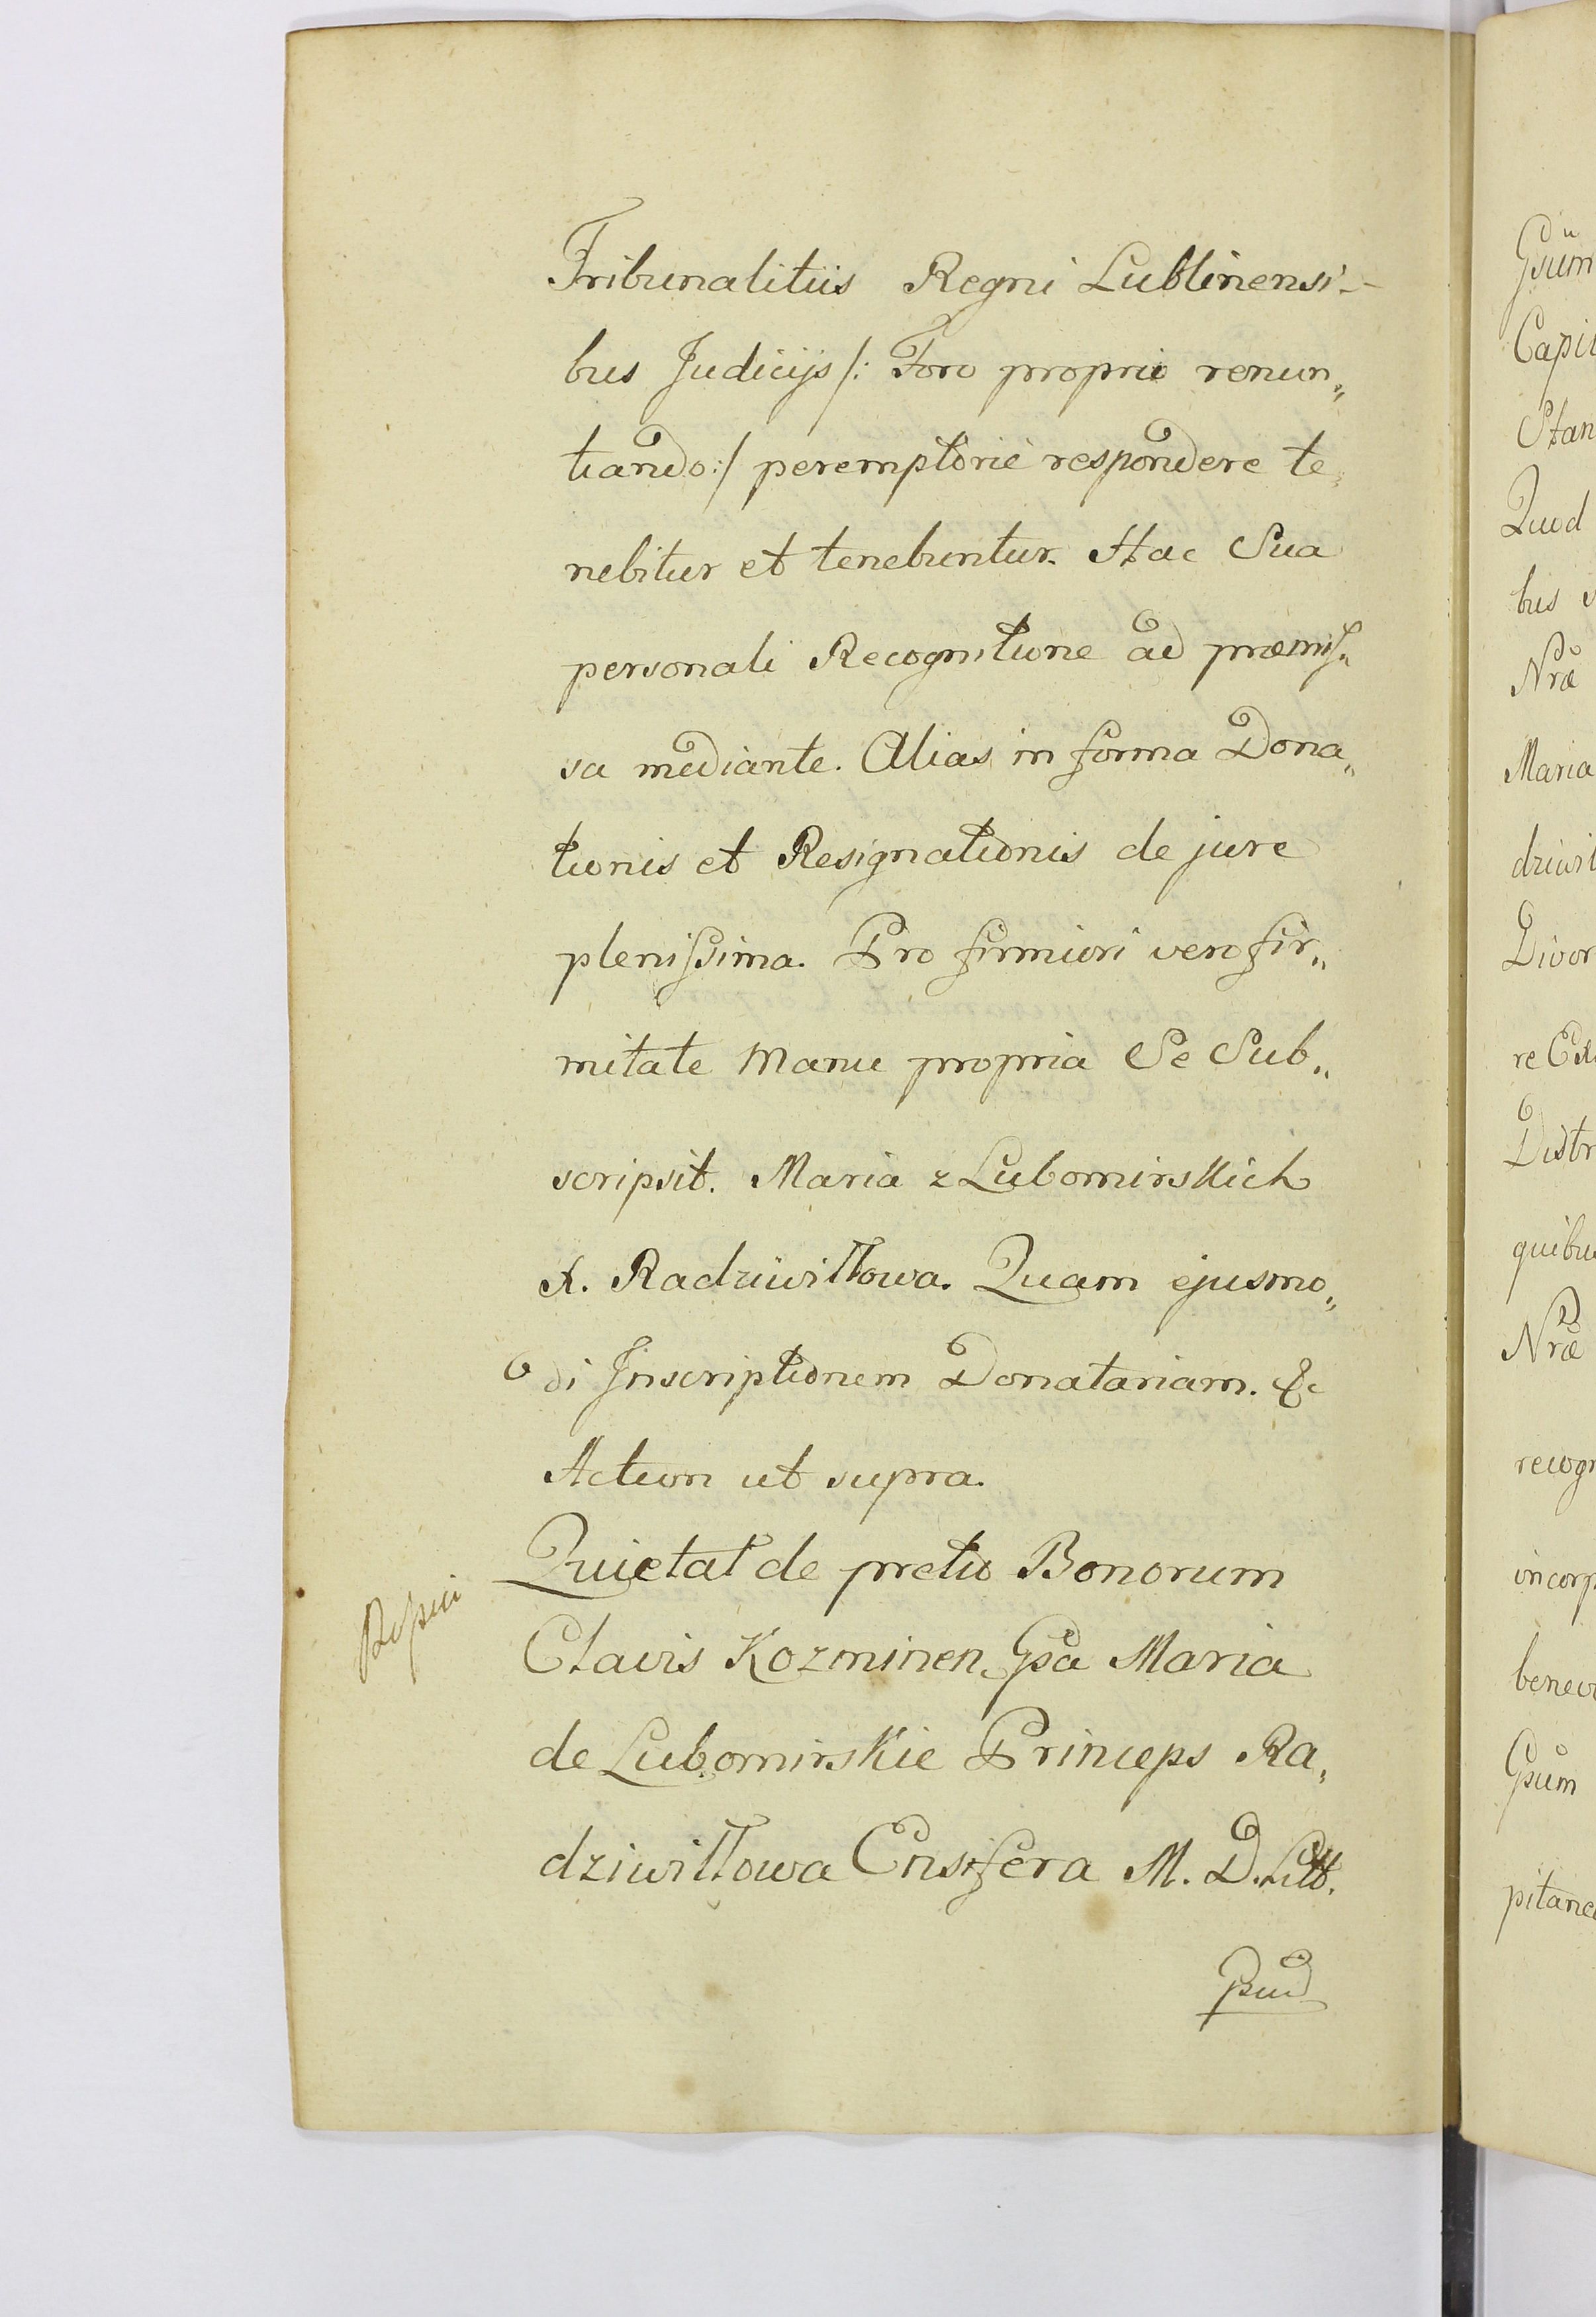 Tribunalitiis Regni Lublinensi-
bus Judicijs /: Foro proprio renun„
tiando :/ peremptorie respondere te„
nebitur et tenebuntur. Hac Sua
personali Recognitione ad præmiſ„
sa mediante. Alias in forma Dona„
tionis et Resignationis de jure
pleniſsima. Pro firmiori vero fir„
mitate Manu propria Se Sub„
scripsit. Maria z Lubomirskich
X. Radziwiłłowa. Quam ejusmo„
di Jnscriptionem Donatariam. &c
Actum ut supra.
Quietat de pretio Bonorum
Clavis Kozminen Gsa Maria
de Lubomirskie Princeps Ra„
dziwiłłowa Ensifera M. D. Litt.
Gsum
Capit
Stan
Quod
bus
Nræ
Maria
dziwił
Divor
re
Distr
quibus
Nræ
recogn
incorp
benev
Gsum
pitane